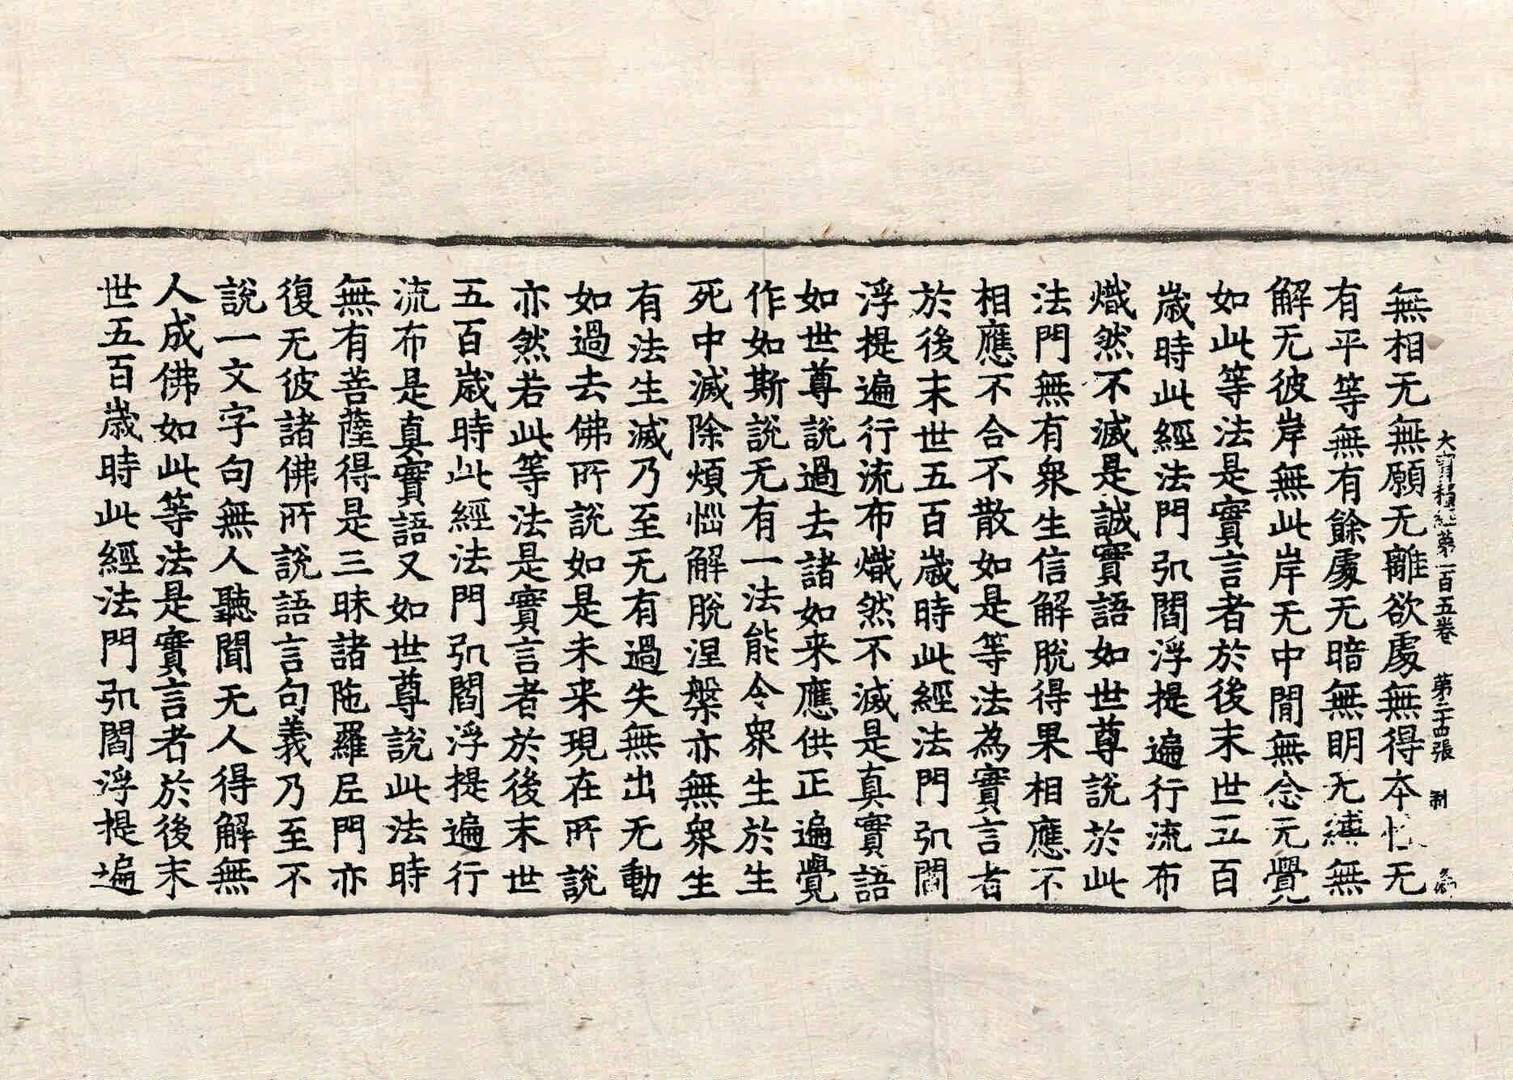 大寶積經第一百五卷 第二十四張 刺
無相无無願无離欲處無得本性无
有平等無有餘處无暗無明无縛無
解无彼岸無此岸无中閒無念无覺
如此等法是實言者於後末世五百
歲時此經法門於閻浮提遍行流布
熾然不滅是誠實語如世尊說於此
法門無有衆生信解脫得果相應不
相應不合不散如是等法為實言者
於後末世五百歲時此經法門於閻
浮提遍行流布熾然不滅是真實語
如世尊說過去諸如来應供正遍覺
作如斯說无有一法能令衆生於生
死中滅除煩惱解脫涅槃亦無衆生
有法生滅乃至无有過失無出无動
如過去佛所說如是未来現在所說
亦然若此等法是實言者於後末世
五百歲時此經法門於閻浮提遍行
流布是真實語又如世尊說此法時
無有菩薩得是三昧諸陁羅尼門亦
復无彼諸佛所說語言句義乃至不
說一文字句無人聽聞无人得解無
人成佛如此等法是實言者於後末
世五百歲時此經法門於閻浮提遍